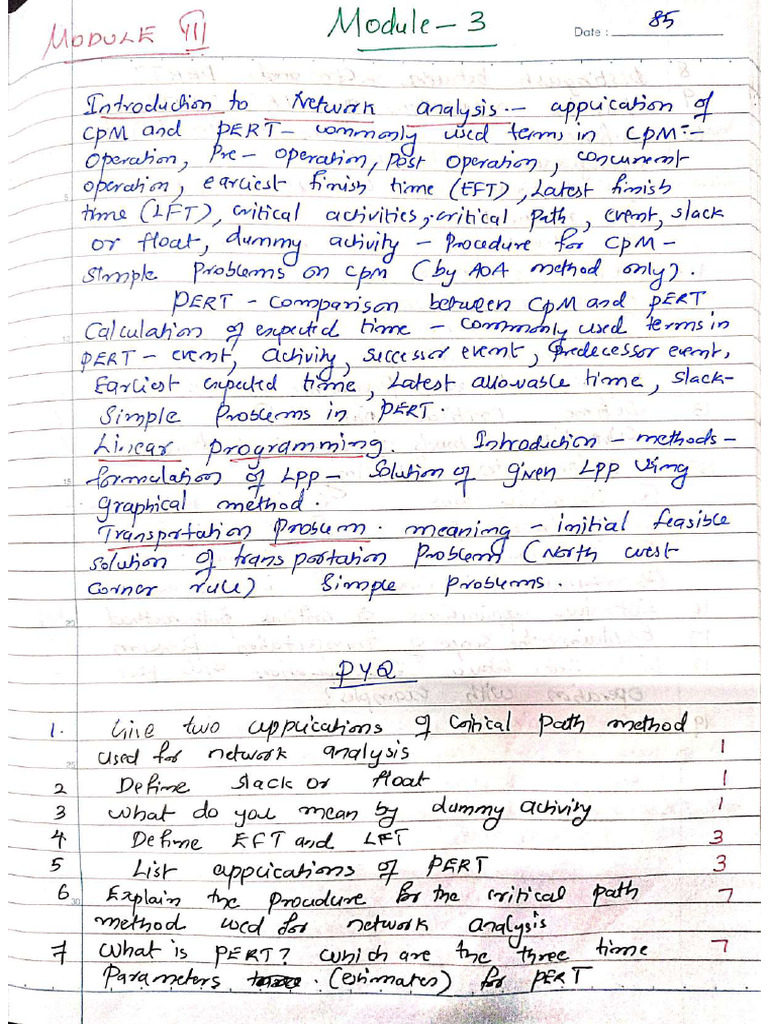 MODULE III Module - 3 Date : 85
Introduction to Network analysis. - application of
CPM and PERT - commonly used terms in CPM :-
operation, Pre - operation, post operation, concurrent
operation, earliest finish time (EFT), Latest finish
time (LFT), critical activities, critical path, event, slack
or float, dummy activity - Procedure for CPM -
simple problems on CPM (by AOA method only).
PERT - comparison between CPM and PERT
Calculation of expected time - commonly used terms in
PERT - event, activity, successor event, Predecessor event,
Earliest expected time, Latest allowable time, slack -
Simple Problems in PERT.
Linear programming. Introduction - methods -
formulation of LPP - solution of given LPP using
graphical method.
Transportation Problem. meaning - initial feasible
solution of transportation Problems (North west
corner rule) Simple problems.
PYQ
1. Give two applications of critical path method
used for network analysis 1
2 Define slack or float 1
3 What do you mean by dummy activity 1
4 Define EFT and LFT 3
5 List applications of PERT 3
6 Explain the procedure for the critical path 7
method used for network analysis
7 What is PERT? which are the three time 7
Parameters (estimates) for PERT